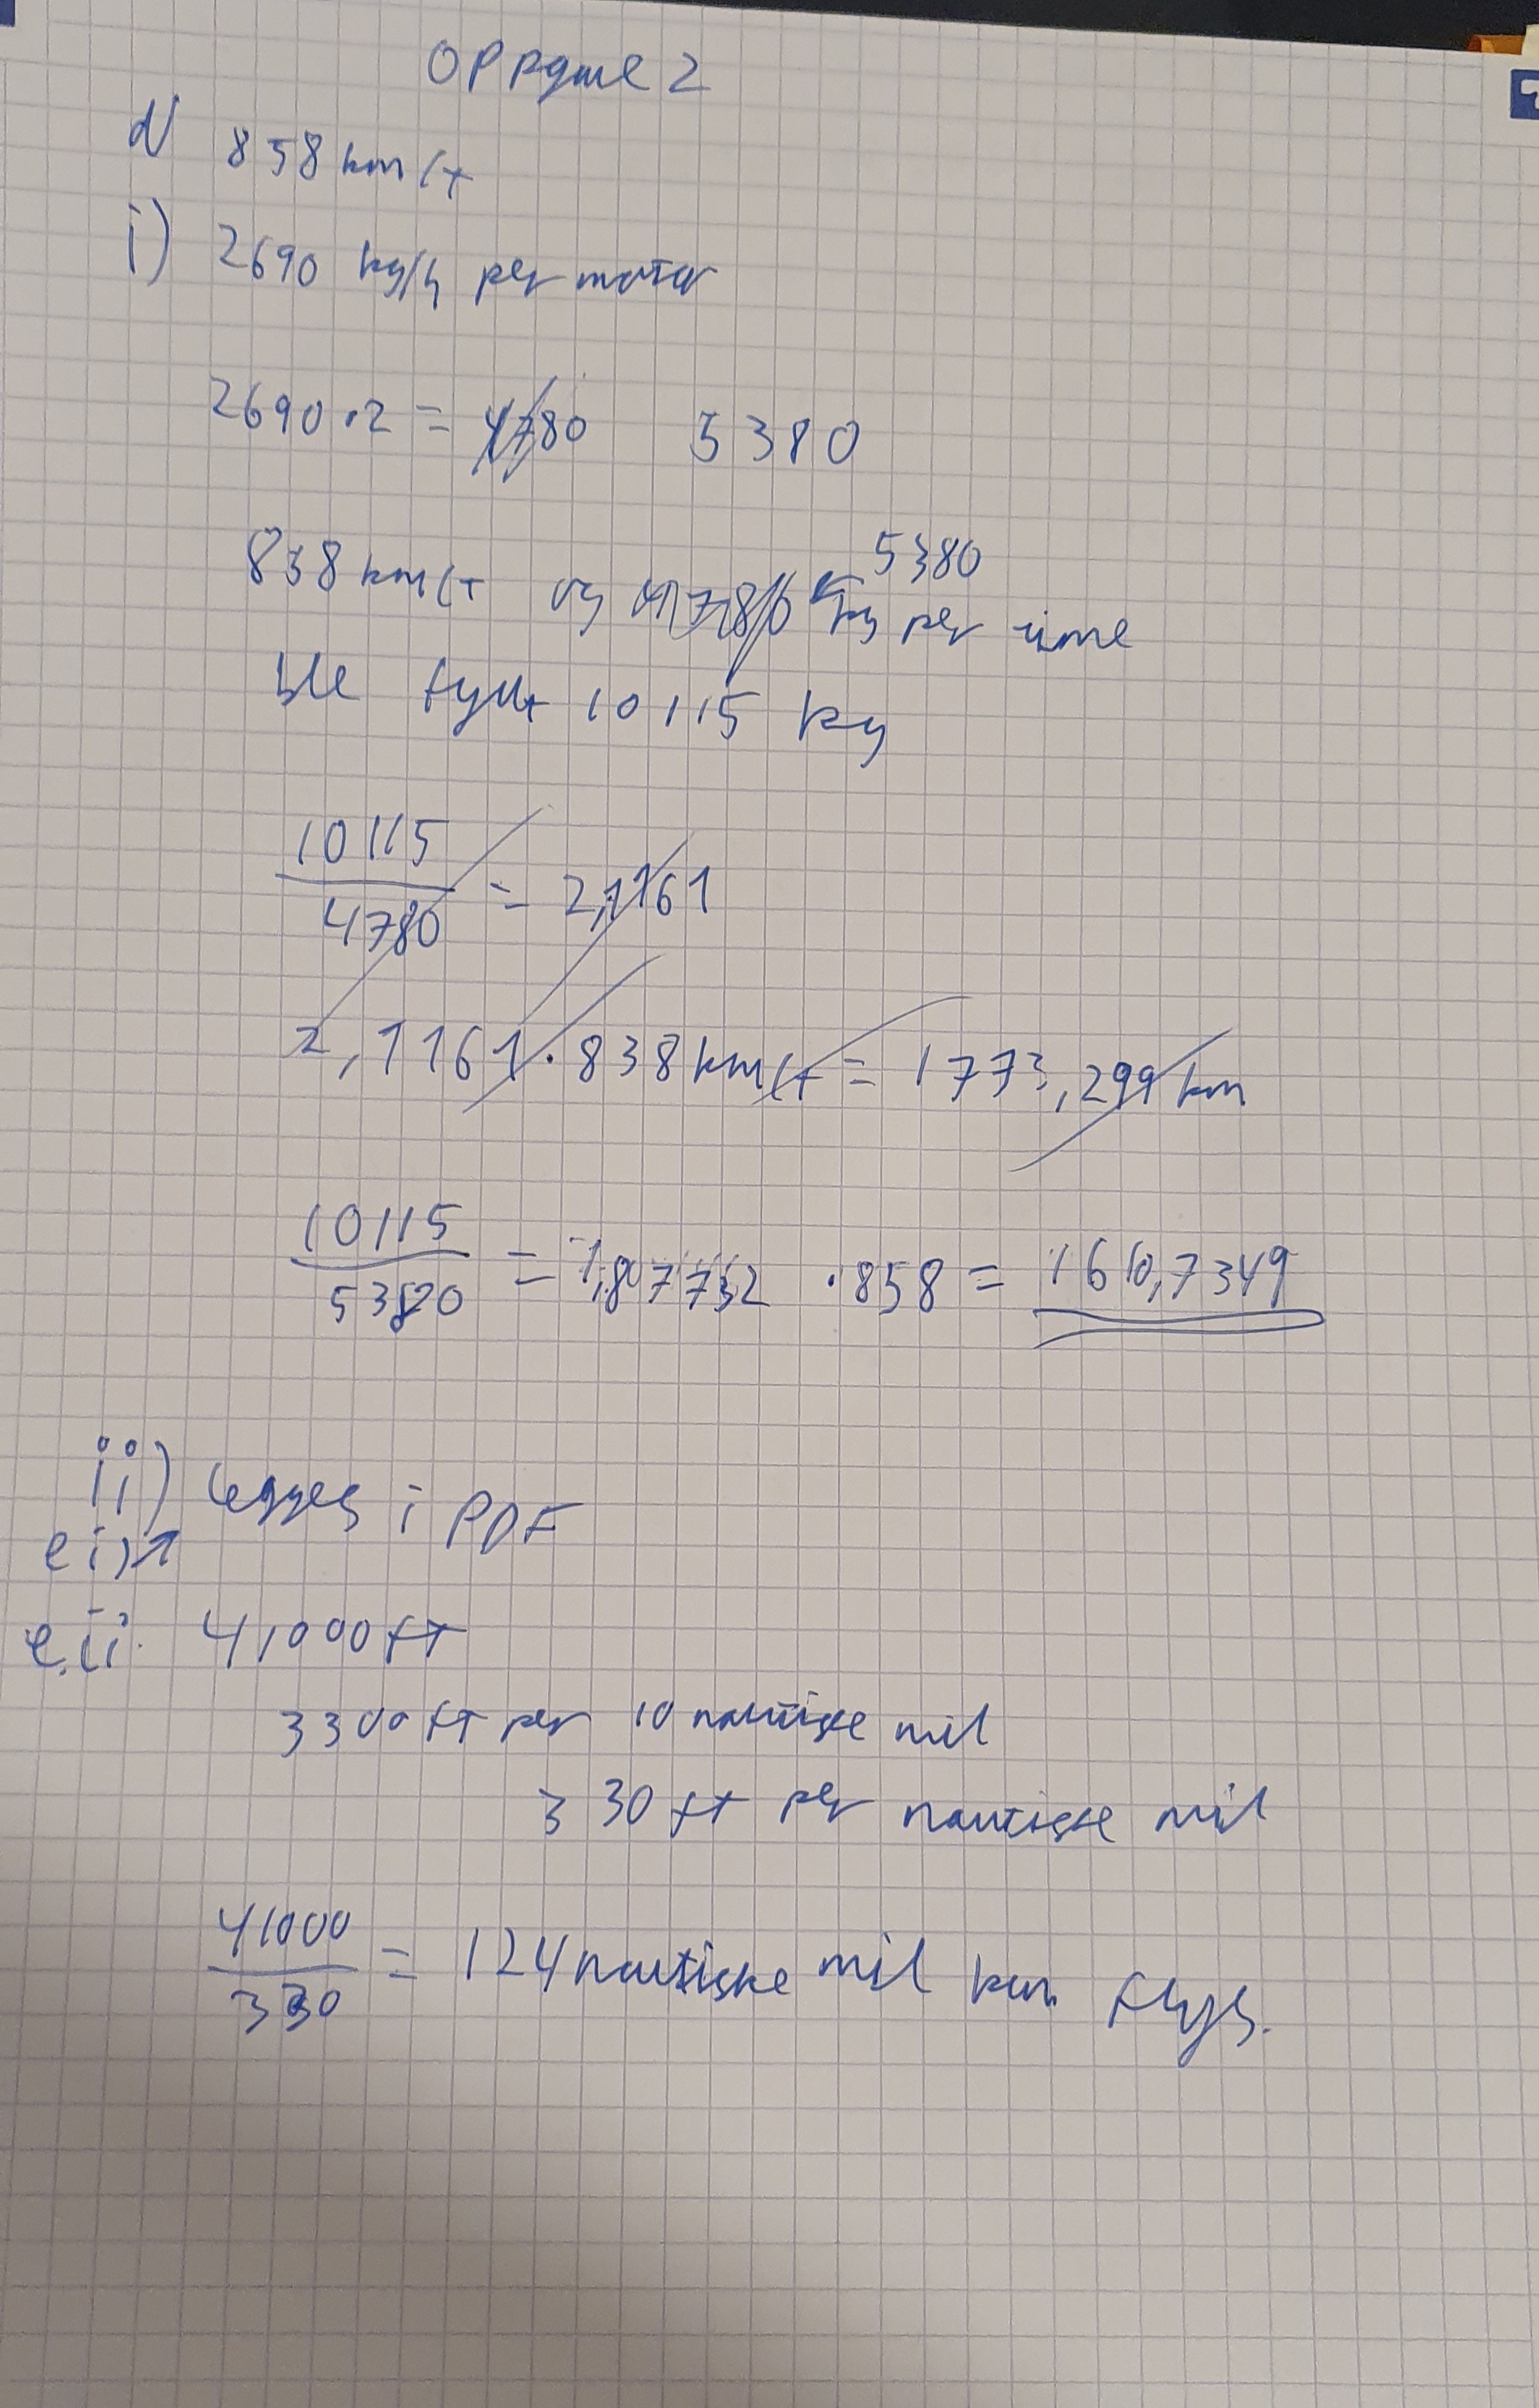 Oppgave 2
d) 858 km/t
i) 2690 kg/h per motor
2690 · 2 = 4780 5380
5380
838 km/t og 4780 kg per time
ble fyllt 10115 kg
10115 / 4780 = 2,1161
2,1161 · 838 km/t = 1773,299 km
10115 / 5380 = · 858 =
ii) legges i PDF
e i) 1
e.ii. 41000 ft
3300 ft per 10 nautiske mil
330 ft per nautiske mil
41000 / 330 = 124 nautiske mil kan flys.